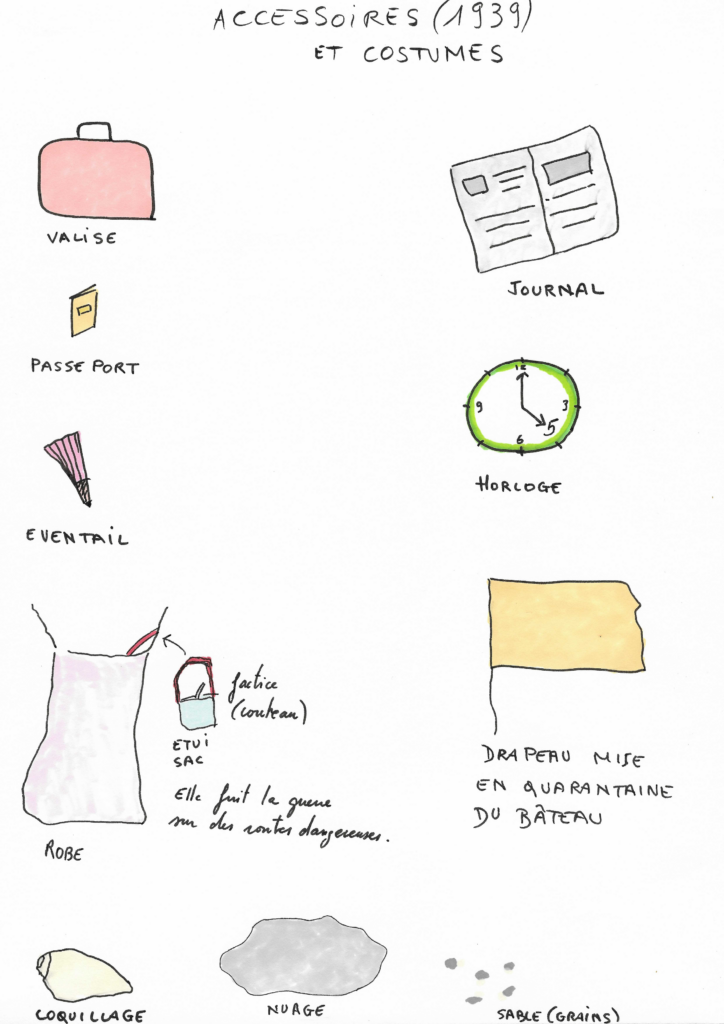 ACCESSOIRES (1939)
ET COSTUMES
VALISE
JOURNAL
PASSE PORT
12
9
3
5
6
HORLOGE
EVENTAIL
factice
(couteau)
ETUI
SAC
Elle fuit la guerre
sur des routes dangereuses.
ROBE
DRAPEAU MISE
EN QUARANTAINE
DU BÂTEAU
COQUILLAGE
NUAGE
SABLE (GRAINS)